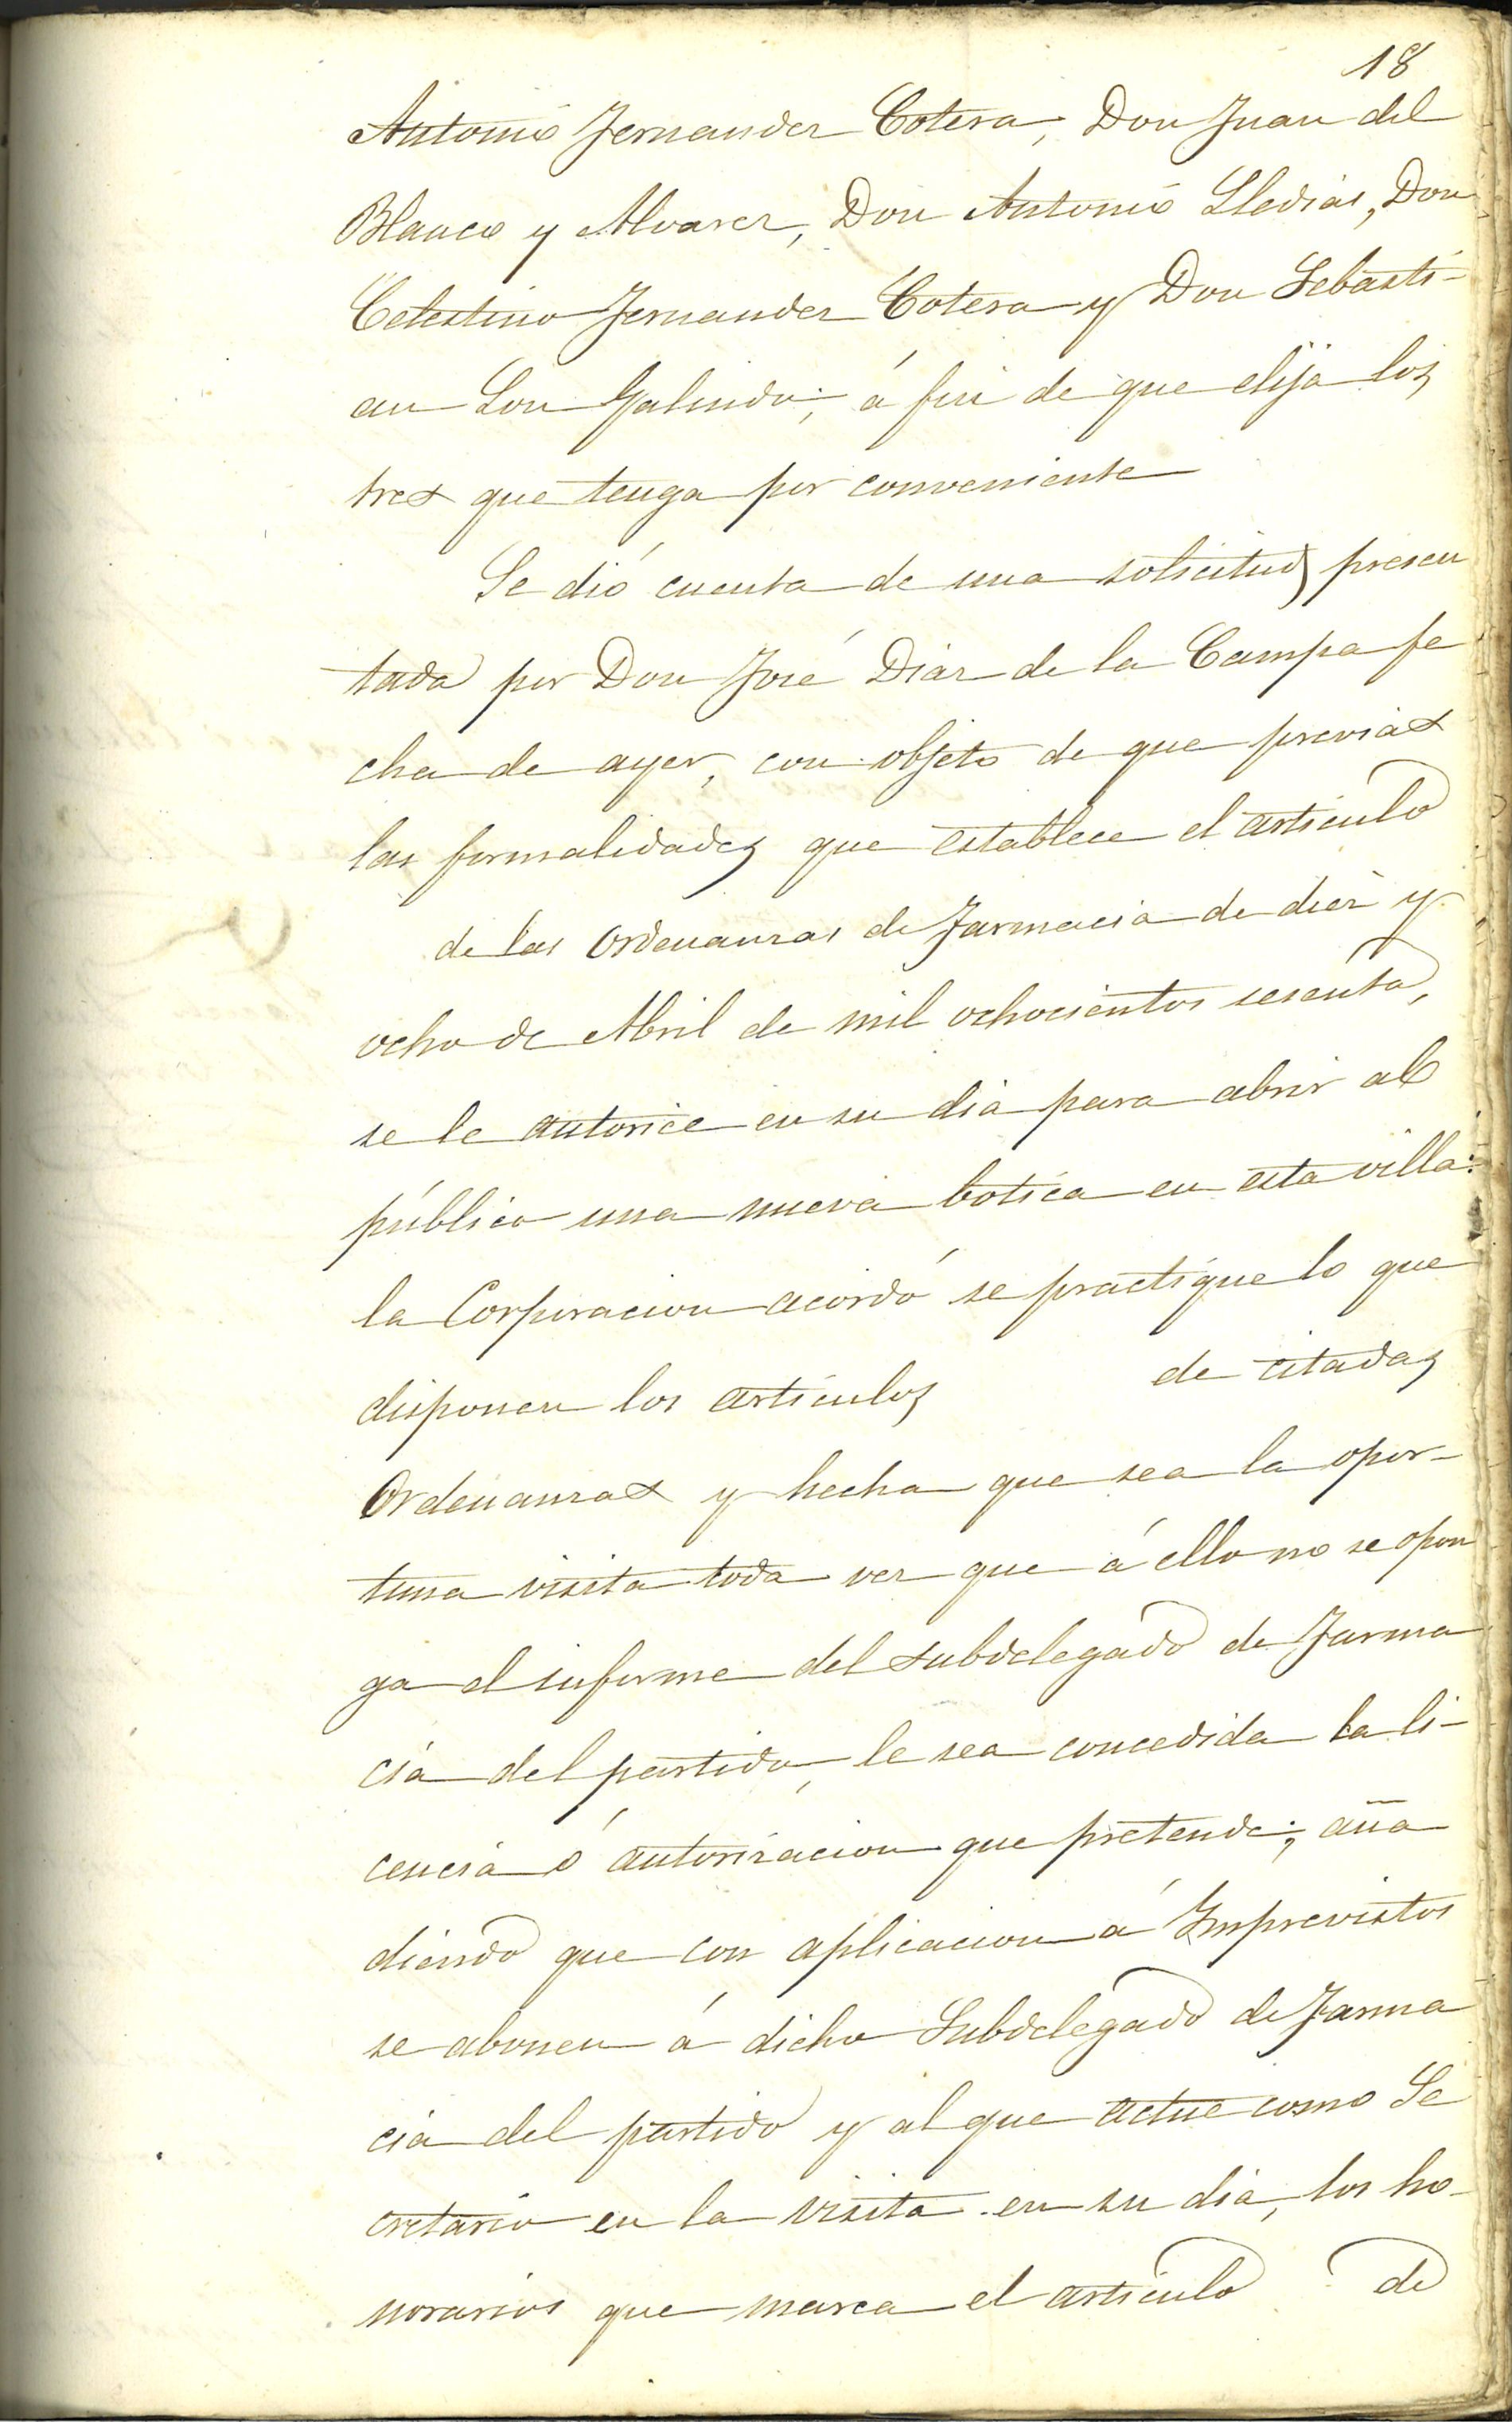 18
Antonio Fernandez Cotera, Don Juan del
Blanco y Alvarez, Don Antonio Lledias, Don
Celestino Fernandez Cotera y Don Sebasti-
an Son Galindo; á fin de que elija los
tres que tenga por conveniente
Se dió cuenta de una solicitud presen
tada por Don José Diaz de la Campa fe
cha de ayer, con objeto de que previas
las formalidades que establece el articulo
de las Ordenanzas de Farmacia de diez y
ocho de Abril de mil ochocientos sesenta,
se le autorice en su dia para abrir al
público una nueva botica en esta villa:
la Corporacion acordó se practique lo que
disponen los articulos de citadas
Ordenanzas y hecha que sea la opor-
tuna visita toda vez que á ello no se opon
ga el informe del subdelegado de Farma
cia del partido, le sea concedida la li-
cencia ó autorizacion que pretende; aña
diendo que con aplicacion á Imprevistos
se abonen á dicho Subdelegado de Farma
cia del partido y al que actue como Se
cretario en la visita en su dia, los ho-
norarios que marca el articulo de